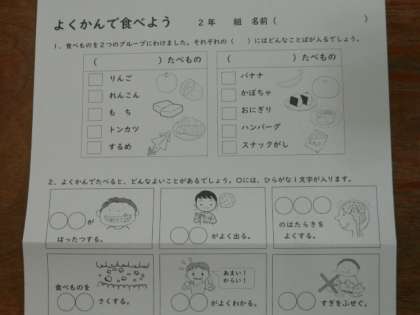 よくかんで食べよう　２年　組　名前（　　　）
１．食べものを２つのグループにわけました。それぞれの（　　）にはどんなことばが入るでしょう。
（　　　）たべもの
りんご
れんこん
もち
トンカツ
するめ
（　　　）たべもの
バナナ
かぼちゃ
おにぎり
ハンバーグ
スナックがし
２．よくかんでたべると、どんなよいことがあるでしょう。〇には、ひらがな１文字が入ります。
〇〇が
はったつする。
〇〇がよく出る。
〇〇〇
のはたらきを
よくする。
食べものを
〇〇さくする。
あまい！
からい！
〇〇がよくわかる。
〇〇すぎをふせぐ。